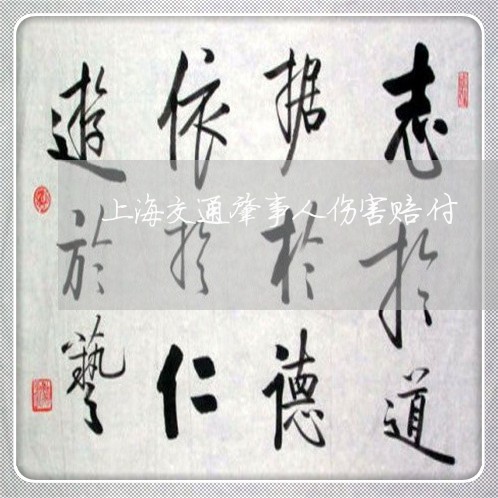 志於道
据於德
依於仁
遊於藝
上海交通肇事人伤害赔付